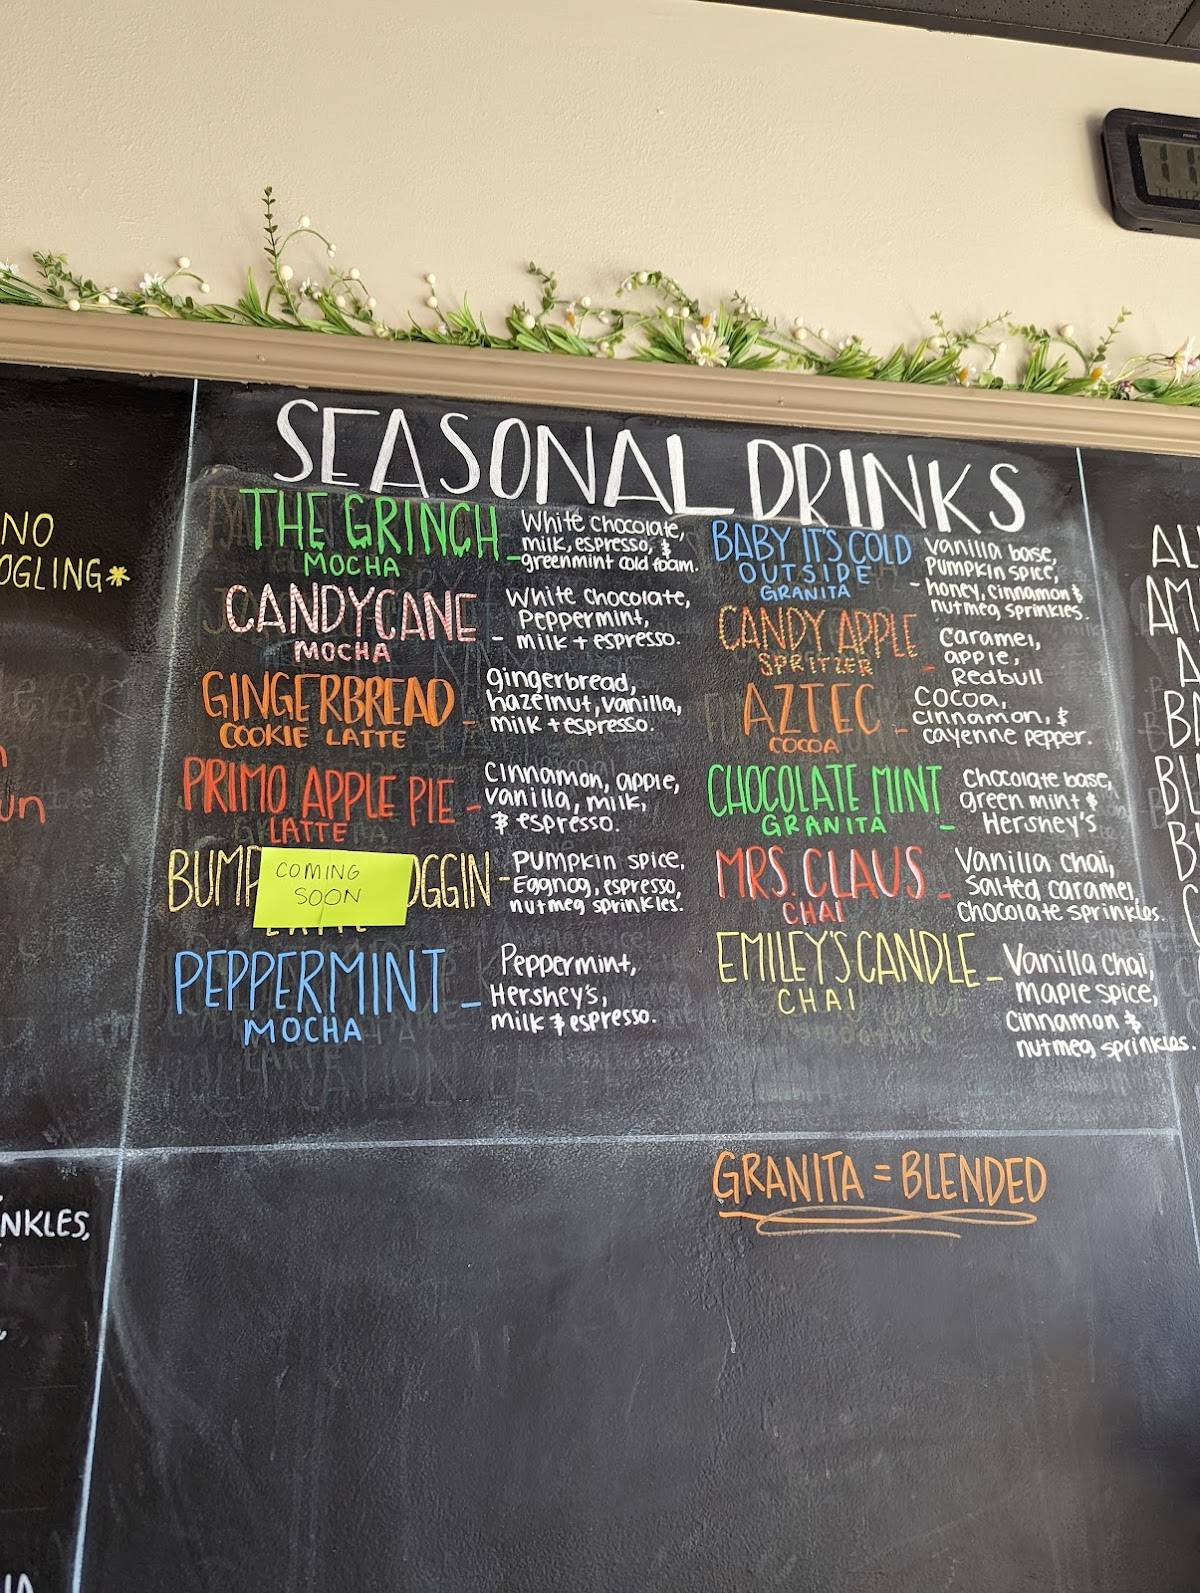 SEASONAL DRINKS
THE GRINCH -
MOCHA
White chocolate,
milk, espresso, &
greenmint cold foam.
CANDYCANE -
MOCHA
White chocolate,
Peppermint,
milk + espresso.
GINGERBREAD -
COOKIE LATTE
gingerbread,
hazelnut, vanilla,
milk + espresso.
PRIMO APPLE PIE -
LATTE
Cinnamon, apple,
vanilla, milk,
& espresso.
BUMP OGGIN -
COMING
SOON
LATTE
Pumpkin spice,
Eggnog, espresso,
nutmeg sprinkles.
PEPPERMINT -
MOCHA
Peppermint,
Hershey's,
milk & espresso.
BABY IT'S COLD
OUTSIDE -
GRANITA
Vanilla base,
Pumpkin spice,
honey, cinnamon &
nutmeg, sprinkles.
CANDY APPLE
SPRITZER -
Caramel,
apple,
Redbull
AZTEC -
COCOA
Cocoa,
cinnamon, &
cayenne pepper.
CHOCOLATE MINT
GRANITA -
Chocolate base,
green mint &
Hershey's
MRS. CLAUS -
CHAI
Vanilla chai,
Salted caramel,
chocolate sprinkles.
EMILEY'S CANDLE -
CHAI
Vanilla chai,
maple spice,
cinnamon &
nutmeg sprinkles.
GRANITA = BLENDED
NO
OGLING*
un
NKLES,
AL
AM
A